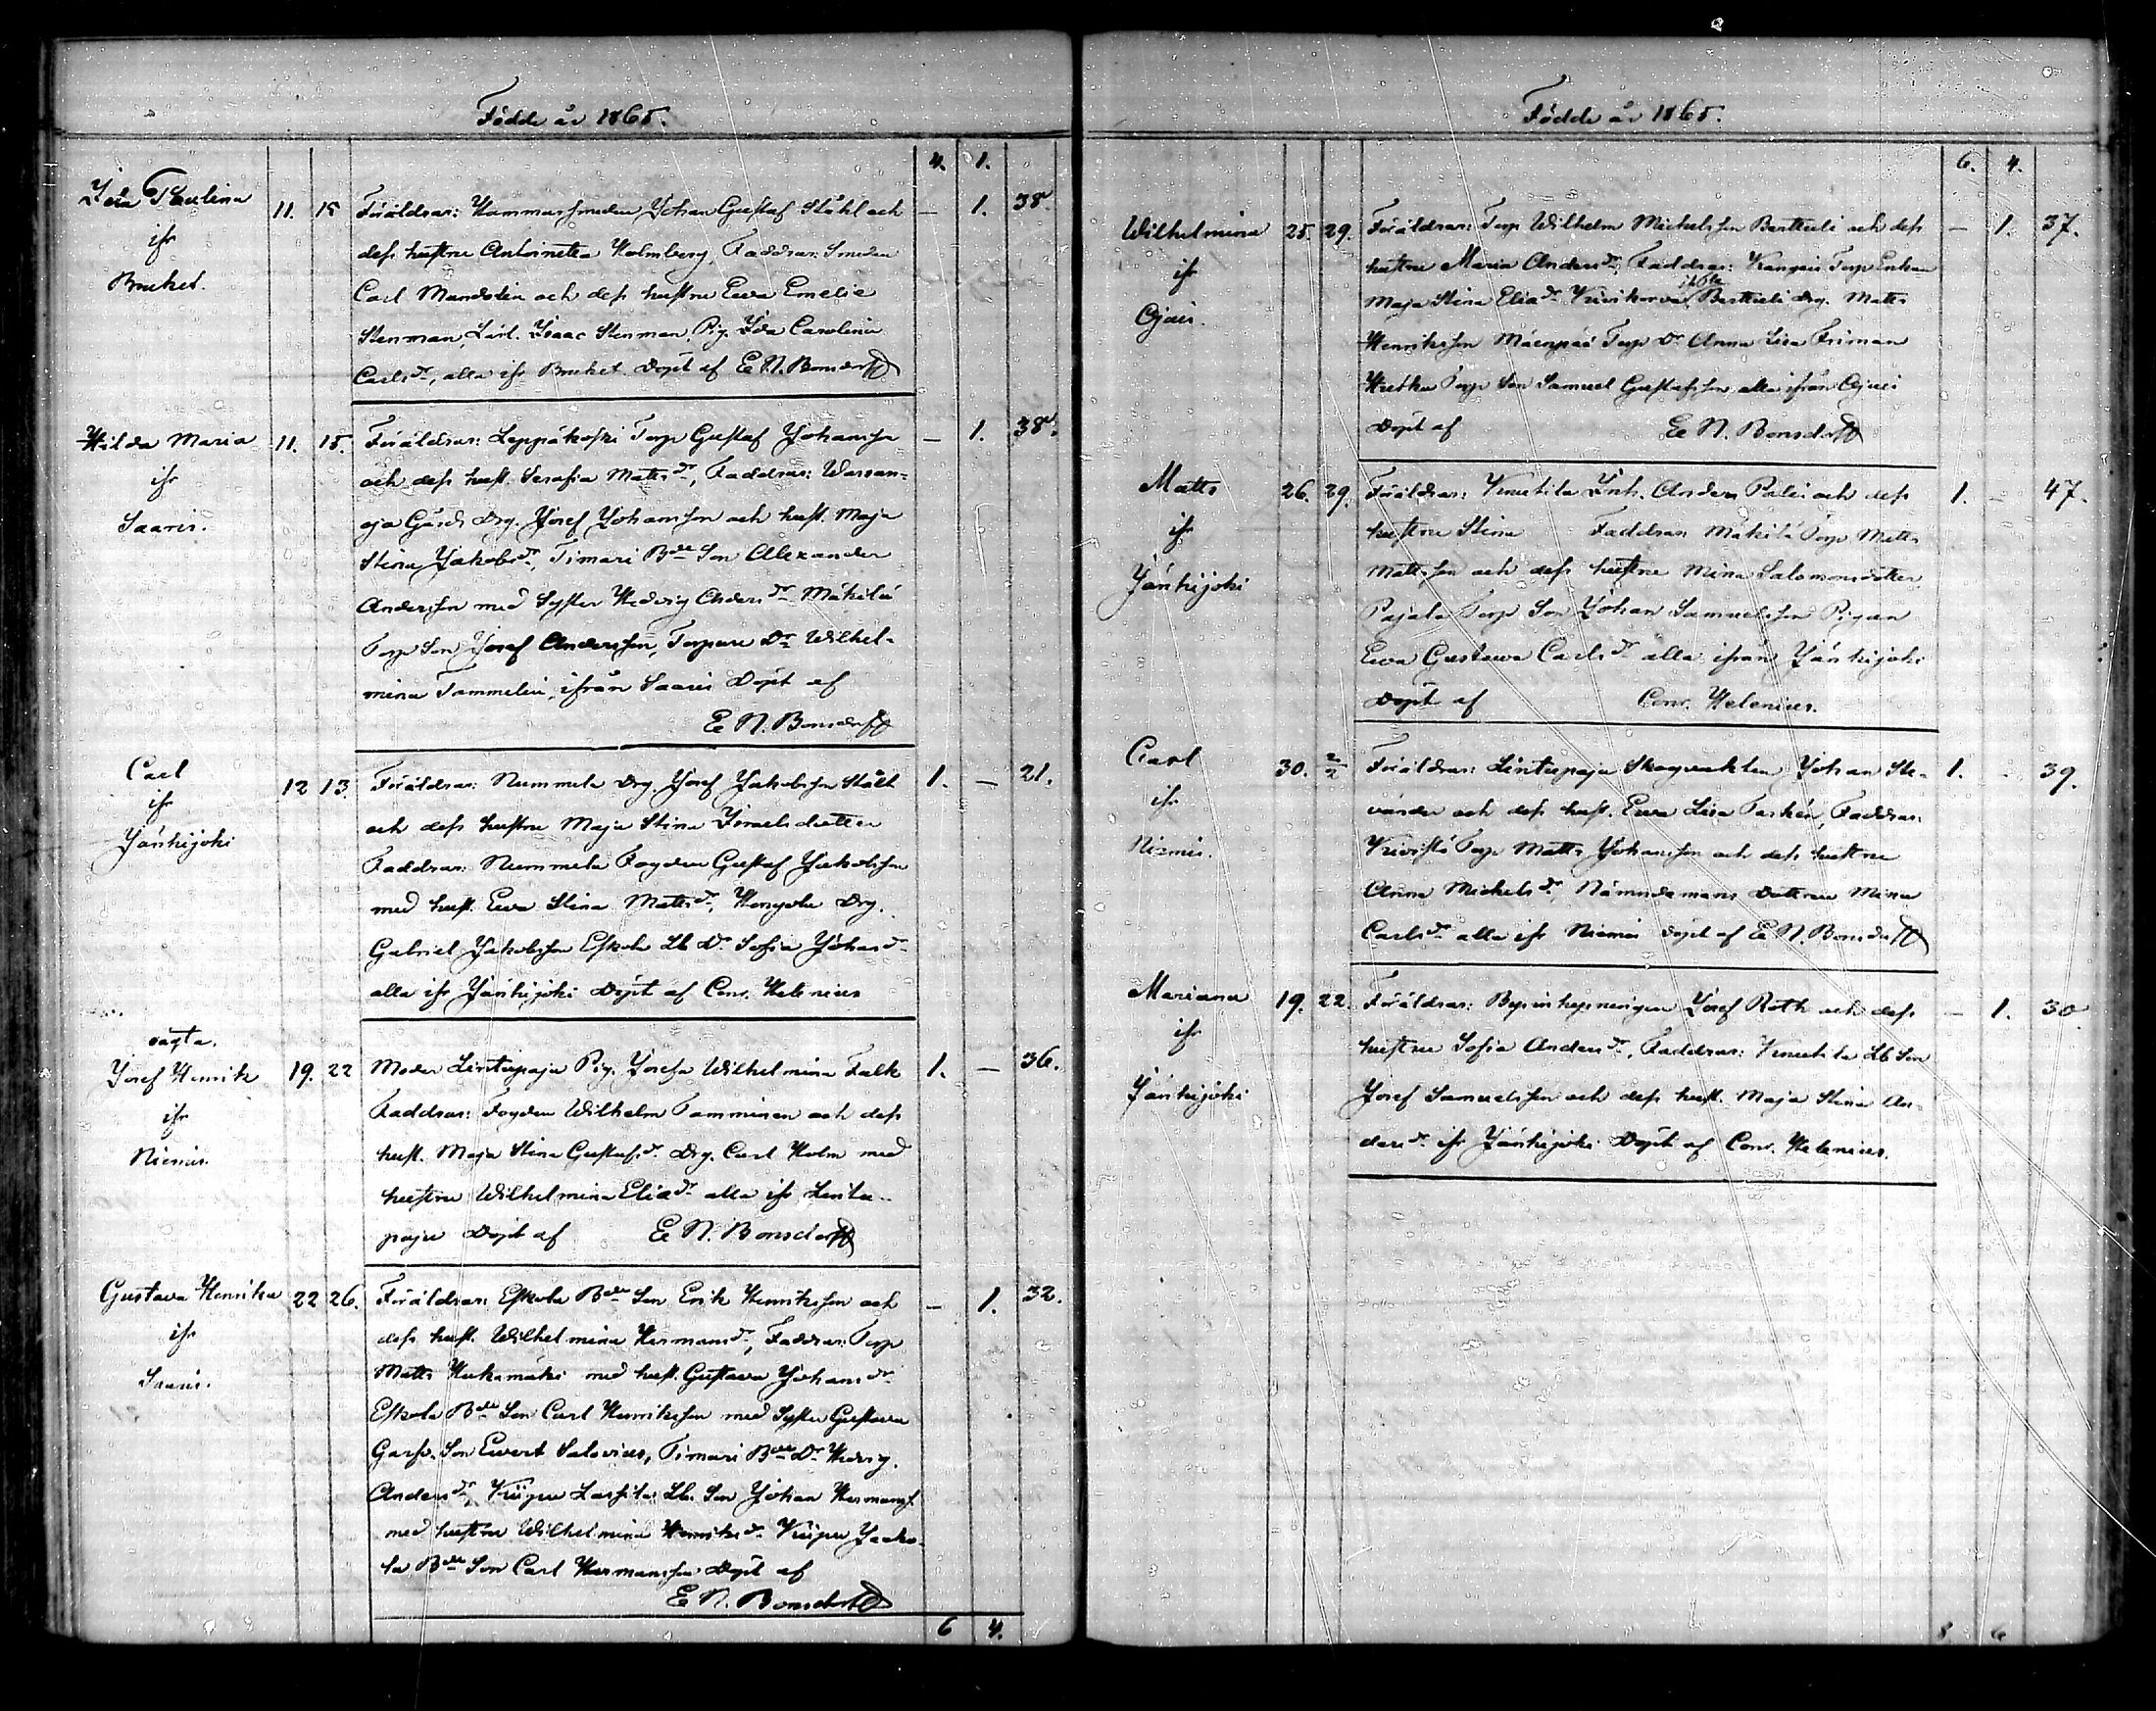 Födde år 1865.
4. 1.
Ida Paulina 11. 15 Föräldrar: Hammarsmeden Johan Gustaf Ståhl och — 1. 38.
ifr
dess hustru Antoinetta Holmberg, Faddrar: Smeden
Bruket.
Carl Mandelin och dess hustru Ewa Emelie
Stenman, Lärl. Isaac Stenman, Pig. Ida Carolina
Carlsdr, alla ifr Bruket Döpt af E N. Bonsdorff
Hilda Maria 11. 15. Föräldrar: Leppäkoski Torp Gustaf Johansson — 1. 38.
ifr
och dess hust. Serafia Mattsdr, Faddrar: Warsan-
Saaris.
oja Gårds Drg. Josef Johansson och hust. Maja
Stina Jakobsdr, Timari Bde Son Alexander
Andersson med Syster Hedvig Andersdr Mäkilä
Torp Son Josef Andersson, Torpare Dr Wilhel-
mina Tammelin, ifrån Saaris Döpt af
E N. Bonsdorff
Carl 12 13. Föräldrar: Nummela Drg. Josef Jakobsson Ståhl 1. — 21.
ifr
och dess hustru Maja Stina Israelsdotter
Jänhijoki
Faddrar: Nummela Fogden Gustaf Jakobsson
med hust. Ewa Stina Mattsdr, Drg.
Gabriel Jakobsson Eskola Lb Dr Sofia Johansdr
alla ifr Jänhijoki Döpt af Conr. Helenius
oägta.
Josef Henrik 19. 22 Moder Lintupaju Pig. Josefa Wilhelmina Falk 1. — 36.
ifr
Faddrar: Fogden Wilhelm Tamminen och dess
Niemis.
hust. Maja Stina Gustafsdr Drg. Carl Holm med
hustru Wilhelmina Eliadr alla ifr Lintu-
paju Döpt af E N. Bonsdorff
Gustava Henrika 22 26. Föräldrar: Eskola Bde Son Erik Henriksson och — 1. 32.
ifr
dess hust. Wilhelmina Hermansdr, Faddrar: Torp
Saaris.
Matts Hukamäki med hust. Gustava Johansdr
Eskola Bde Son Carl Henriksson med Syster Gustava
Garfv. Son Ewert Salovius, Timari Bde Dr Hedvig
Andersdr Lb. Son Johan Hermanss.
med hustru Wilhelmina Henriksdr Jaako-
la Bde Son Carl Hermansson Döpt af
E N. Bonsdorff
6 4.
Födde år 1865.
6. 4.
Wilhelmina 25. 29. Föräldrar: Torp Wilhelm Michelsson Bertteli och dess — 1. 37.
ifr
hustru Maria Andersdr, Faddrar: Torp Enkan
Ojais.
Maja Stina Eliadr Bertteli Drg. Matts
Henriksson Mäenpää Torp Dr Anna Lisa Friman
Torp Son Samuel Gustafsson alla ifrån Ojais
Döpt af E N. Bonsdorff
Matts 26. 29. Föräldrar: Inh. Anders Palei och dess 1. — 47.
ifr
hustru Stina Faddrar: Mäkilä Torp Matts
Jänhijoki
Mattsson och dess hustru Mina Salomonsdotter
Pajala Torp Son Johan Samuelsson Pigan
Ewa Gustava Carlsdr alla ifrån Jänhijoki
Döpt af Conr. Helenius.
Carl 30. 2/2 Föräldrar: Lintupaju Skogvaktaren Johan Ste- 1. - 39.
ifr
vander och dess hust. Ewa Lisa Faddrar:
Niemis.
Torp Matts Johansson och dess hustru
Anna Michelsdr, Nämndemans Dottren Mina
Carlsdr alla ifr Niemis Döpt af E N. Bonsdorff
Mariana 19. 22. Föräldrar: Josef Roth och dess — 1. 30
ifr
hustru Sofia Andersdr, Faddrar: Lb Son
Jänhijoki
Josef Samuelsson och dess hust. Maja Stina An-
dersdr ifr Jänhijoki Döpt af Conr. Helenius.
8 6